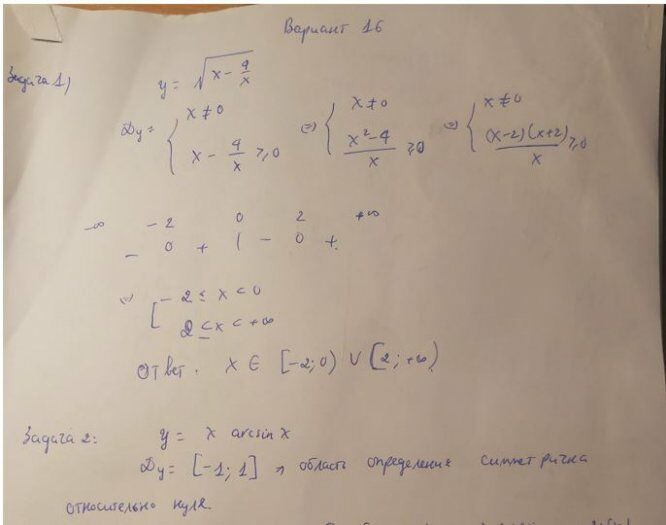 Вариант 16
Задача 1)
y = √(x - 4/x)
Dy = { x ≠ 0 ; x - 4/x ≥ 0 ⇔ { x ≠ 0 ; (x² - 4)/x ≥ 0 ⇔ { x ≠ 0 ; (x-2)(x+2)/x ≥ 0
-∞ -2 0 2 +∞
- 0 + | - 0 +
⇔ [ -2 ≤ x < 0
2 ≤ x < +∞
Ответ. x ∈ [-2; 0) ∪ [2; +∞)
Задача 2: y = x arcsin x
Dy = [-1; 1] → область определения симметрична
относительно нуля.